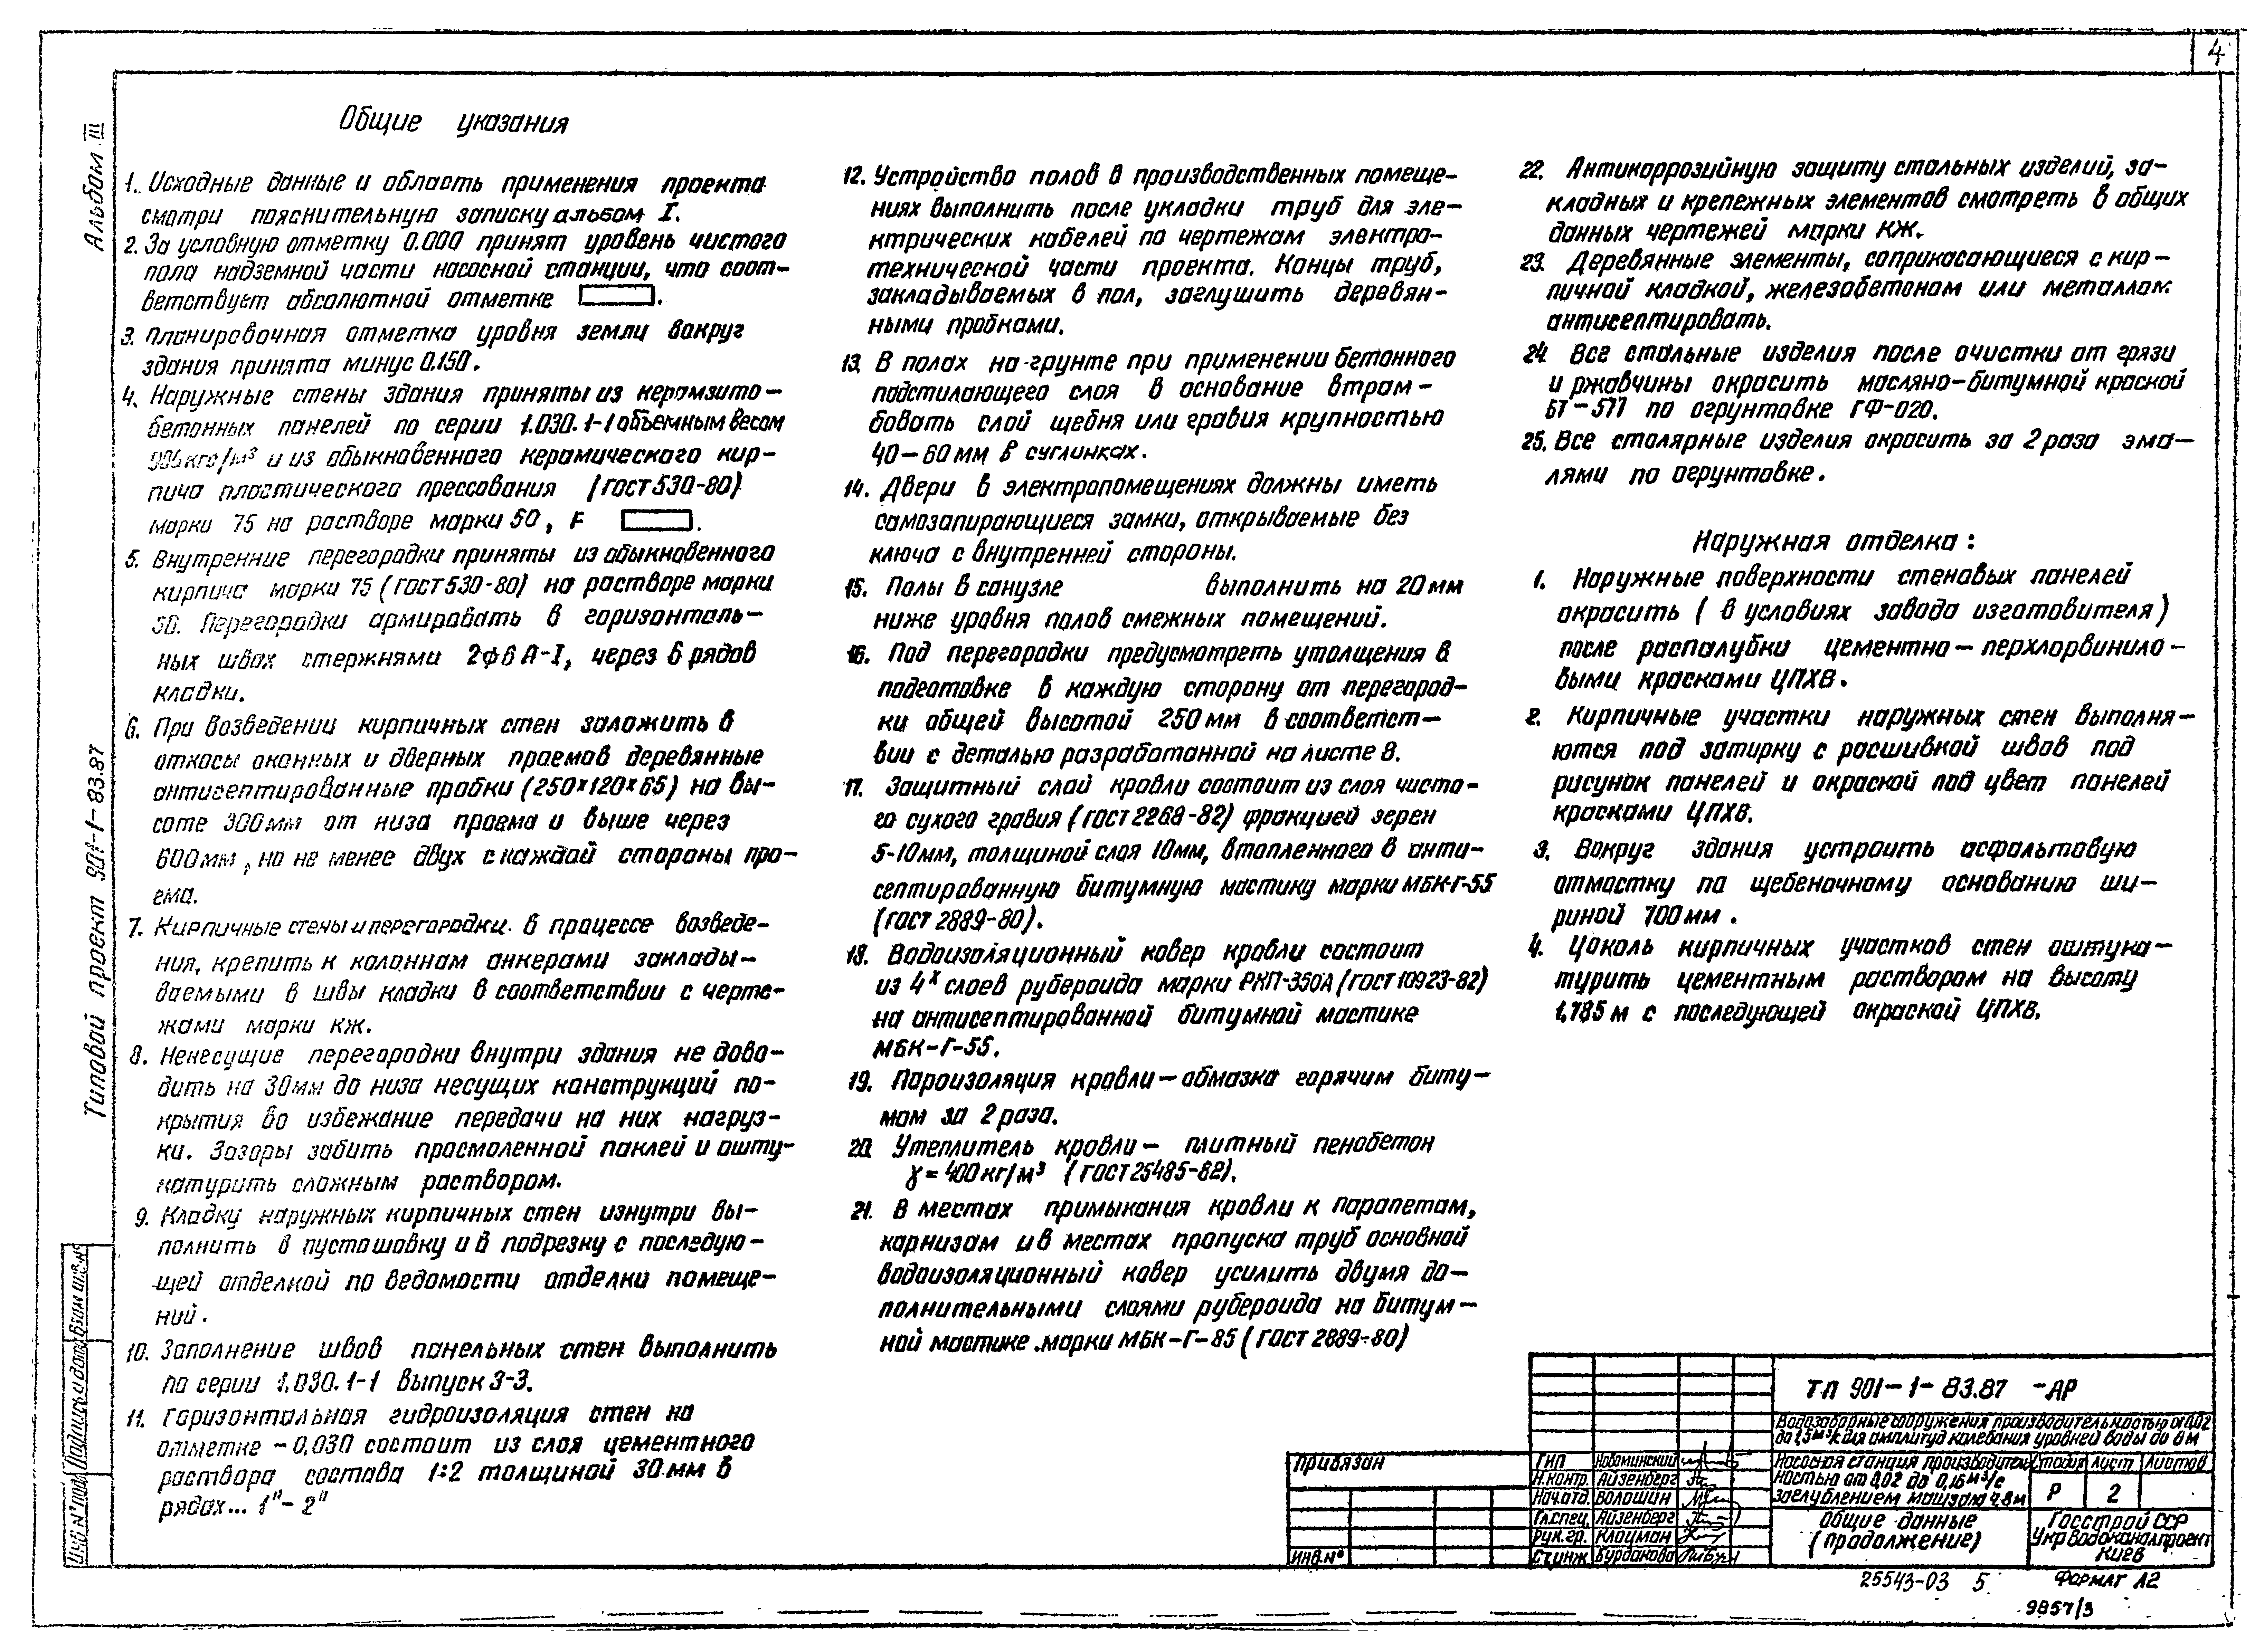 4
Альбом III
Типовой проект 901-1-83.87
Общие указания
1. Исходные данные и область применения проекта
смотри пояснительную записку альбом I.
2. За условную отметку 0.000 принят уровень чистого
пола надземной части насосной станции, что соот-
ветствует абсолютной отметке
3. Планировочная отметка уровня земли вокруг
здания принята минус 0.150.
4. Наружные стены здания приняты из керамзито-
бетонных панелей по серии 1.030.1-1 объемным весом
кгс/м³ и из обыкновенного керамического кир-
пича пластического прессования (ГОСТ 530-80)
марки 75 на растворе марки 50, F
5. Внутренние перегородки приняты из обыкновенного
кирпича марки 75 (ГОСТ 530-80) на растворе марки
50. Перегородки армировать в горизонталь-
ных швах стержнями 2ф6 А-I, через 6 рядов
кладки.
6. При возведении кирпичных стен заложить в
откосы оконных и дверных проемов деревянные
антисептированные пробки (250×120×65) на вы-
соте 300мм от низа проема и выше через
600мм, но не менее двух с каждой стороны про-
ема.
7. Кирпичные стены и перегородки в процессе возведе-
ния, крепить к колоннам анкерами заклады-
ваемыми в швы кладки в соответствии с черте-
жами марки КЖ.
8. Ненесущие перегородки внутри здания не дово-
дить на 30мм до низа несущих конструкций по-
крытия во избежание передачи на них нагруз-
ки. Зазоры забить просмоленной паклей и ошту-
катурить сложным раствором.
9. Кладку наружных кирпичных стен изнутри вы-
полнить в пустошовку и в подрезку с последую-
щей отделкой по ведомости отделки помеще-
ний.
10. Заполнение швов панельных стен выполнить
по серии 1.030.1-1 Выпуск 3-3.
11. Горизонтальная гидроизоляция стен на
отметке -0,030 состоит из слоя цементного
раствора состава 1:2 толщиной 30 мм в
рядах... 1"-2"
12. Устройство полов в производственных помеще-
ниях выполнить после укладки труб для эле-
ктрических кабелей по чертежам электро-
технической части проекта. Концы труб,
закладываемых в пол, заглушить деревян-
ными пробками.
13. В полах на грунте при применении бетонного
подстилающего слоя в основание втрам-
бовать слой щебня или гравия крупностью
40-60мм в суглинках.
14. Двери в электропомещениях должны иметь
самозапирающиеся замки, открываемые без
ключа с внутренней стороны.
15. Полы в санузле выполнить на 20мм
ниже уровня полов смежных помещений.
16. Под перегородки предусмотреть утолщения в
подготовке в каждую сторону от перегород-
ки общей высотой 250мм в соответст-
вии с деталью разработанной на листе 8.
17. Защитный слой кровли состоит из слоя чисто-
го сухого гравия (ГОСТ 2268-82) фракцией зерен
5-10мм, толщиной слоя 10мм, втопленного в анти-
септированную битумную мастику марки МБК-Г-55
(ГОСТ 2889-80).
18. Водоизоляционный ковер кровли состоит
из 4х слоев рубероида марки РКП-350А (ГОСТ 10923-82)
на антисептированной битумной мастике
МБК-Г-55.
19. Пароизоляция кровли-обмазка горячим биту-
мом за 2 раза.
20. Утеплитель кровли- плитный пенобетон
γ=400кг/м³ (ГОСТ 25485-82).
21. В местах примыкания кровли к парапетам,
карнизам и в местах пропуска труб основной
водоизоляционный ковер усилить двумя до-
полнительными слоями рубероида на битум-
ной мастике марки МБК-Г-85 (ГОСТ 2889-80)
22. Антикоррозийную защиту стальных изделий, за-
кладных и крепежных элементов смотреть в общих
данных чертежей марки КЖ.
23. Деревянные элементы, соприкасающиеся с кир-
пичной кладкой, железобетоном или металлом
антисептировать.
24. Все стальные изделия после очистки от грязи
и ржавчины окрасить масляно-битумной краской
БТ-577 по огрунтовке ГФ-020.
25. Все столярные изделия окрасить за 2 раза эма-
лями по огрунтовке.
Наружная отделка:
1. Наружные поверхности стеновых панелей
окрасить (в условиях завода изготовителя)
после распалубки цементно-перхлорвинило-
выми красками ЦПХВ.
2. Кирпичные участки наружных стен выполня-
ются под затирку с расшивкой швов под
рисунок панелей и окраской под цвет панелей
красками ЦПХВ.
3. Вокруг здания устроить асфальтовую
отмостку по щебеночному основанию ши-
риной 700мм.
4. Цоколь кирпичных участков стен оштука-
турить цементным раствором на высоту
1,785м с последующей окраской ЦПХВ.
Взам инв.№
Подпись и дата
Инв № подл
ТП 901-1-83.87 -АР
Водозаборные сооружения производительностью от 0,02
до 1,5 м³/с для амплитуд колебания уровней воды до 8 м
Привязан
Инв.№
ГИП Новоминский
Н.контр. Айзенберг
Нач.отд. Волошин
Гл.спец. Айзенберг
Рук.гр. Клоцман
Ст.инж. Бурдакова
Насосная станция производитель-
ностью от 0,02 до 0,16м³/с
заглублением машзала 4,8м
Стадия Лист Листов
Р 2
Общие данные
(продолжение)
Госстрой СССР
Укрводоканалпроект
Киев
25543-03 5
Формат А2
9857/3